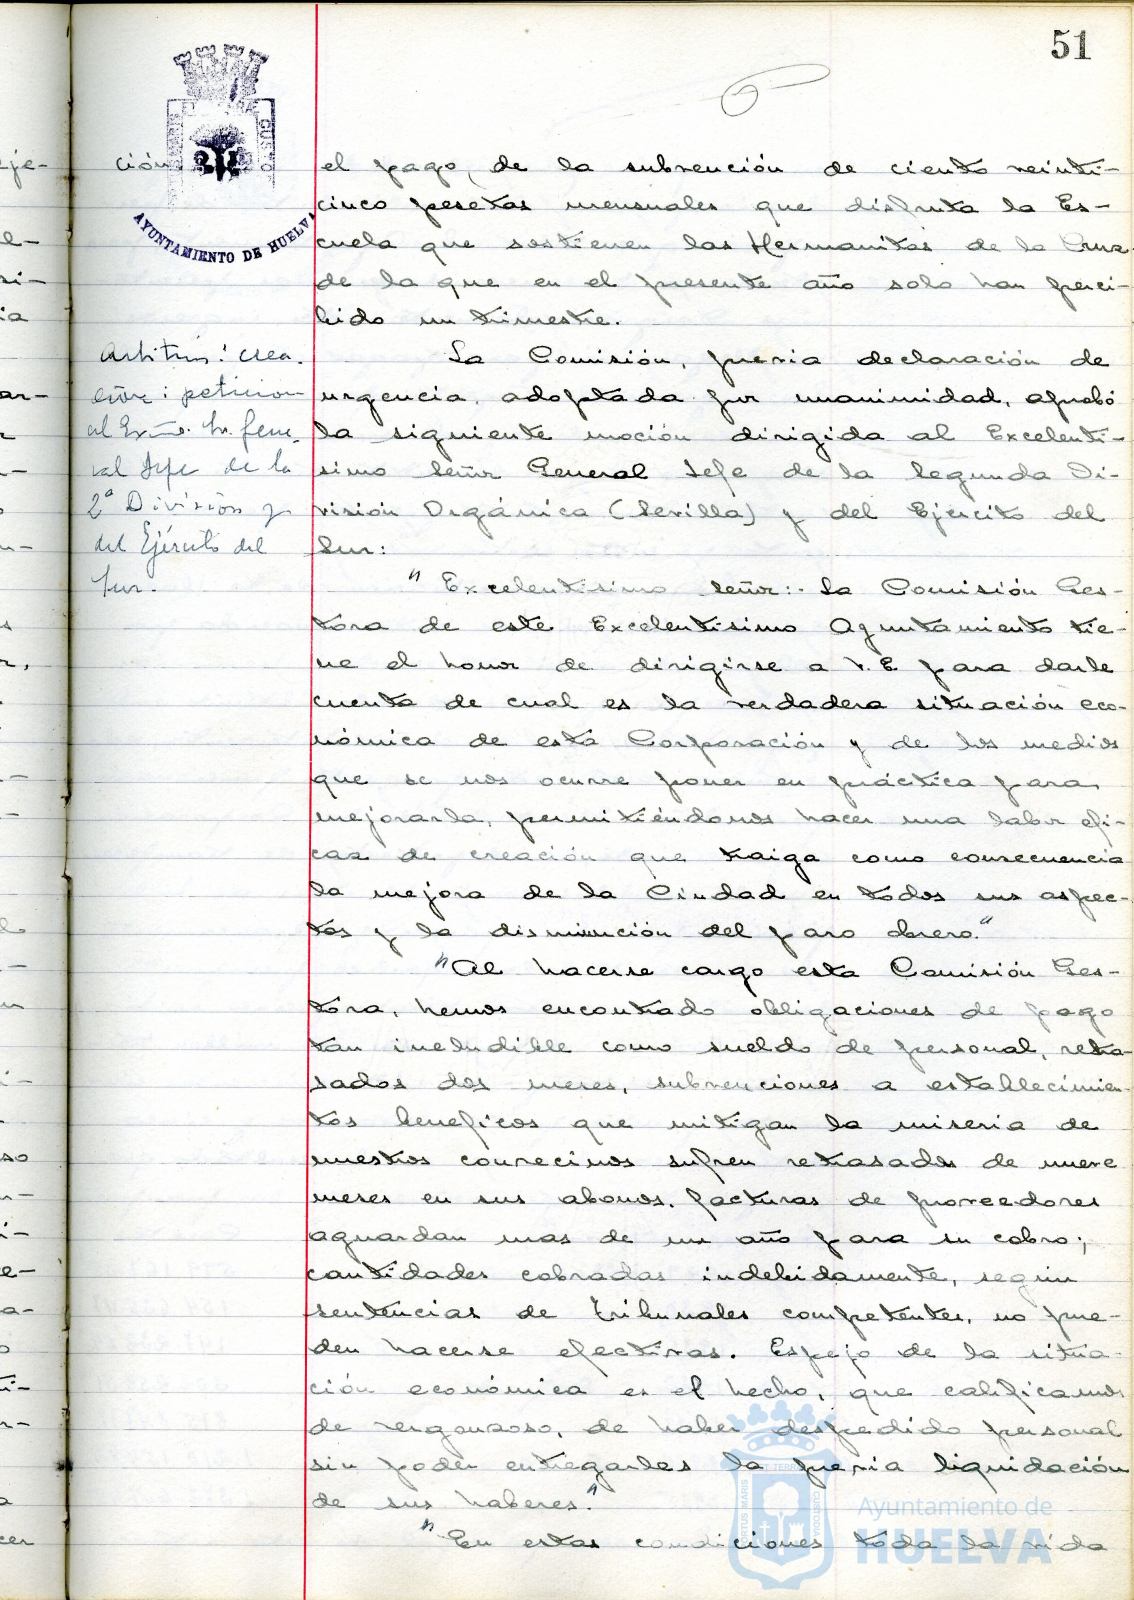 51
ción
AYUNTAMIENTO DE HUELVA
el pago, de la subvención de ciento veinti-
cinco pesetas mensuales que disfruta la Es-
cuela que sostienen las Hermanitas de la Cruz
de la que en el presente año solo han perci-
bido un trimestre.
Arbitrios: crea-
ción: peticion
al Excmo. Sr. Gene-
ral Jefe de la
2ª División y
del Ejército del
Sur.
La Comisión, previa declaración de
urgencia, adoptada por unanimidad, aprobó
la siguiente moción dirigida al Excelentí-
simo Señor General Jefe de la Segunda Di-
visión Orgánica (Sevilla) y del Ejército del
Sur:
"Excelentísimo Señor: La Comisión Ges-
tora de este Excelentísimo Ayuntamiento tie-
ne el honor de dirigirse a V. E para darle
cuenta de cual es la verdadera situación eco-
nómica de esta Corporación y de los medios
que se nos ocurre poner en práctica para
mejorarla, permitiéndonos hacer una labor efi-
caz de creación que traiga como consecuencia
la mejora de la Ciudad en todos sus aspec-
tos y la disminución del paro obrero."
"Al hacerse cargo esta Comisión Ges-
tora, hemos encontrado obligaciones de pago
tan ineludible como sueldo de personal, retra-
sados dos meses, subvenciones a establecimien-
tos beneficos que mitigan la miseria de
nuestros convecinos sufren retrasados de nueve
meses en sus abonos, facturas de proveedores
aguardan mas de un año para su cobro;
cantidades cobradas indebidamente, según
sentencias de tribunales competentes, no pue-
den hacerse efectivas. Espejo de la situa-
ción económica es el hecho, que calificamos
de vergonzoso, de haber despedido personal
sin poder entregarles la previa liquidación
de sus haberes."
"En estas condiciones toda la vida
Ayuntamiento de
HUELVA